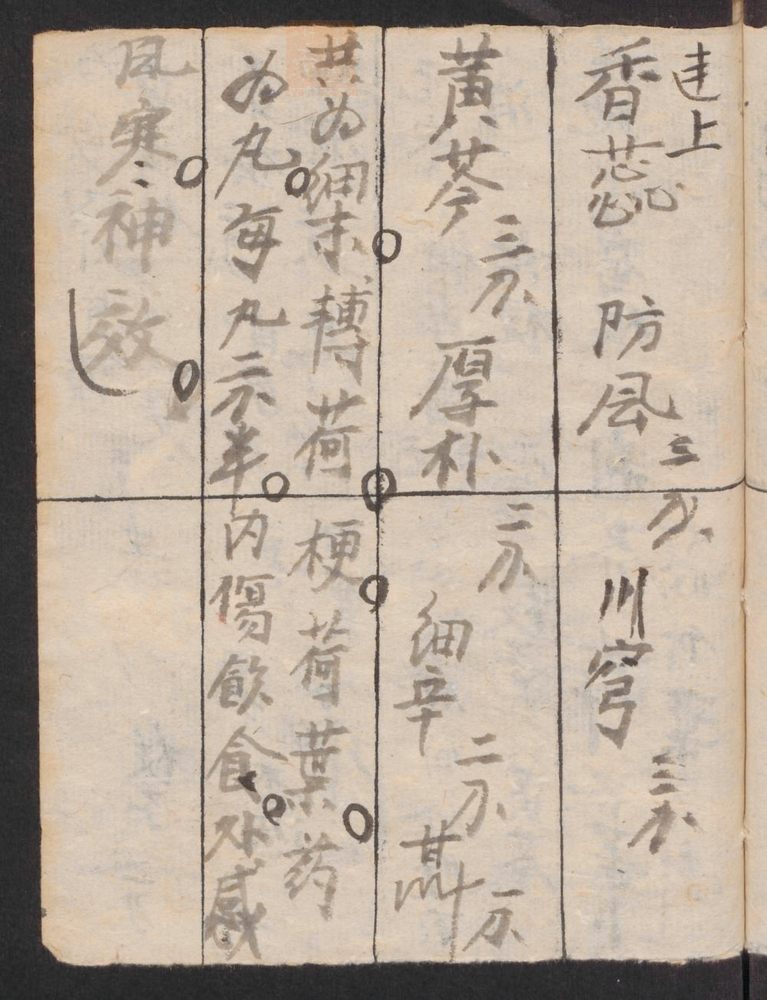 連上
香蕊 防風三分 川穹三分
黄芩三分 厚朴二分 細辛二分 甘艸一分
共為細末轉荷 梗荷葉药
为丸每丸三分半内傷飲食外感
风寒神效